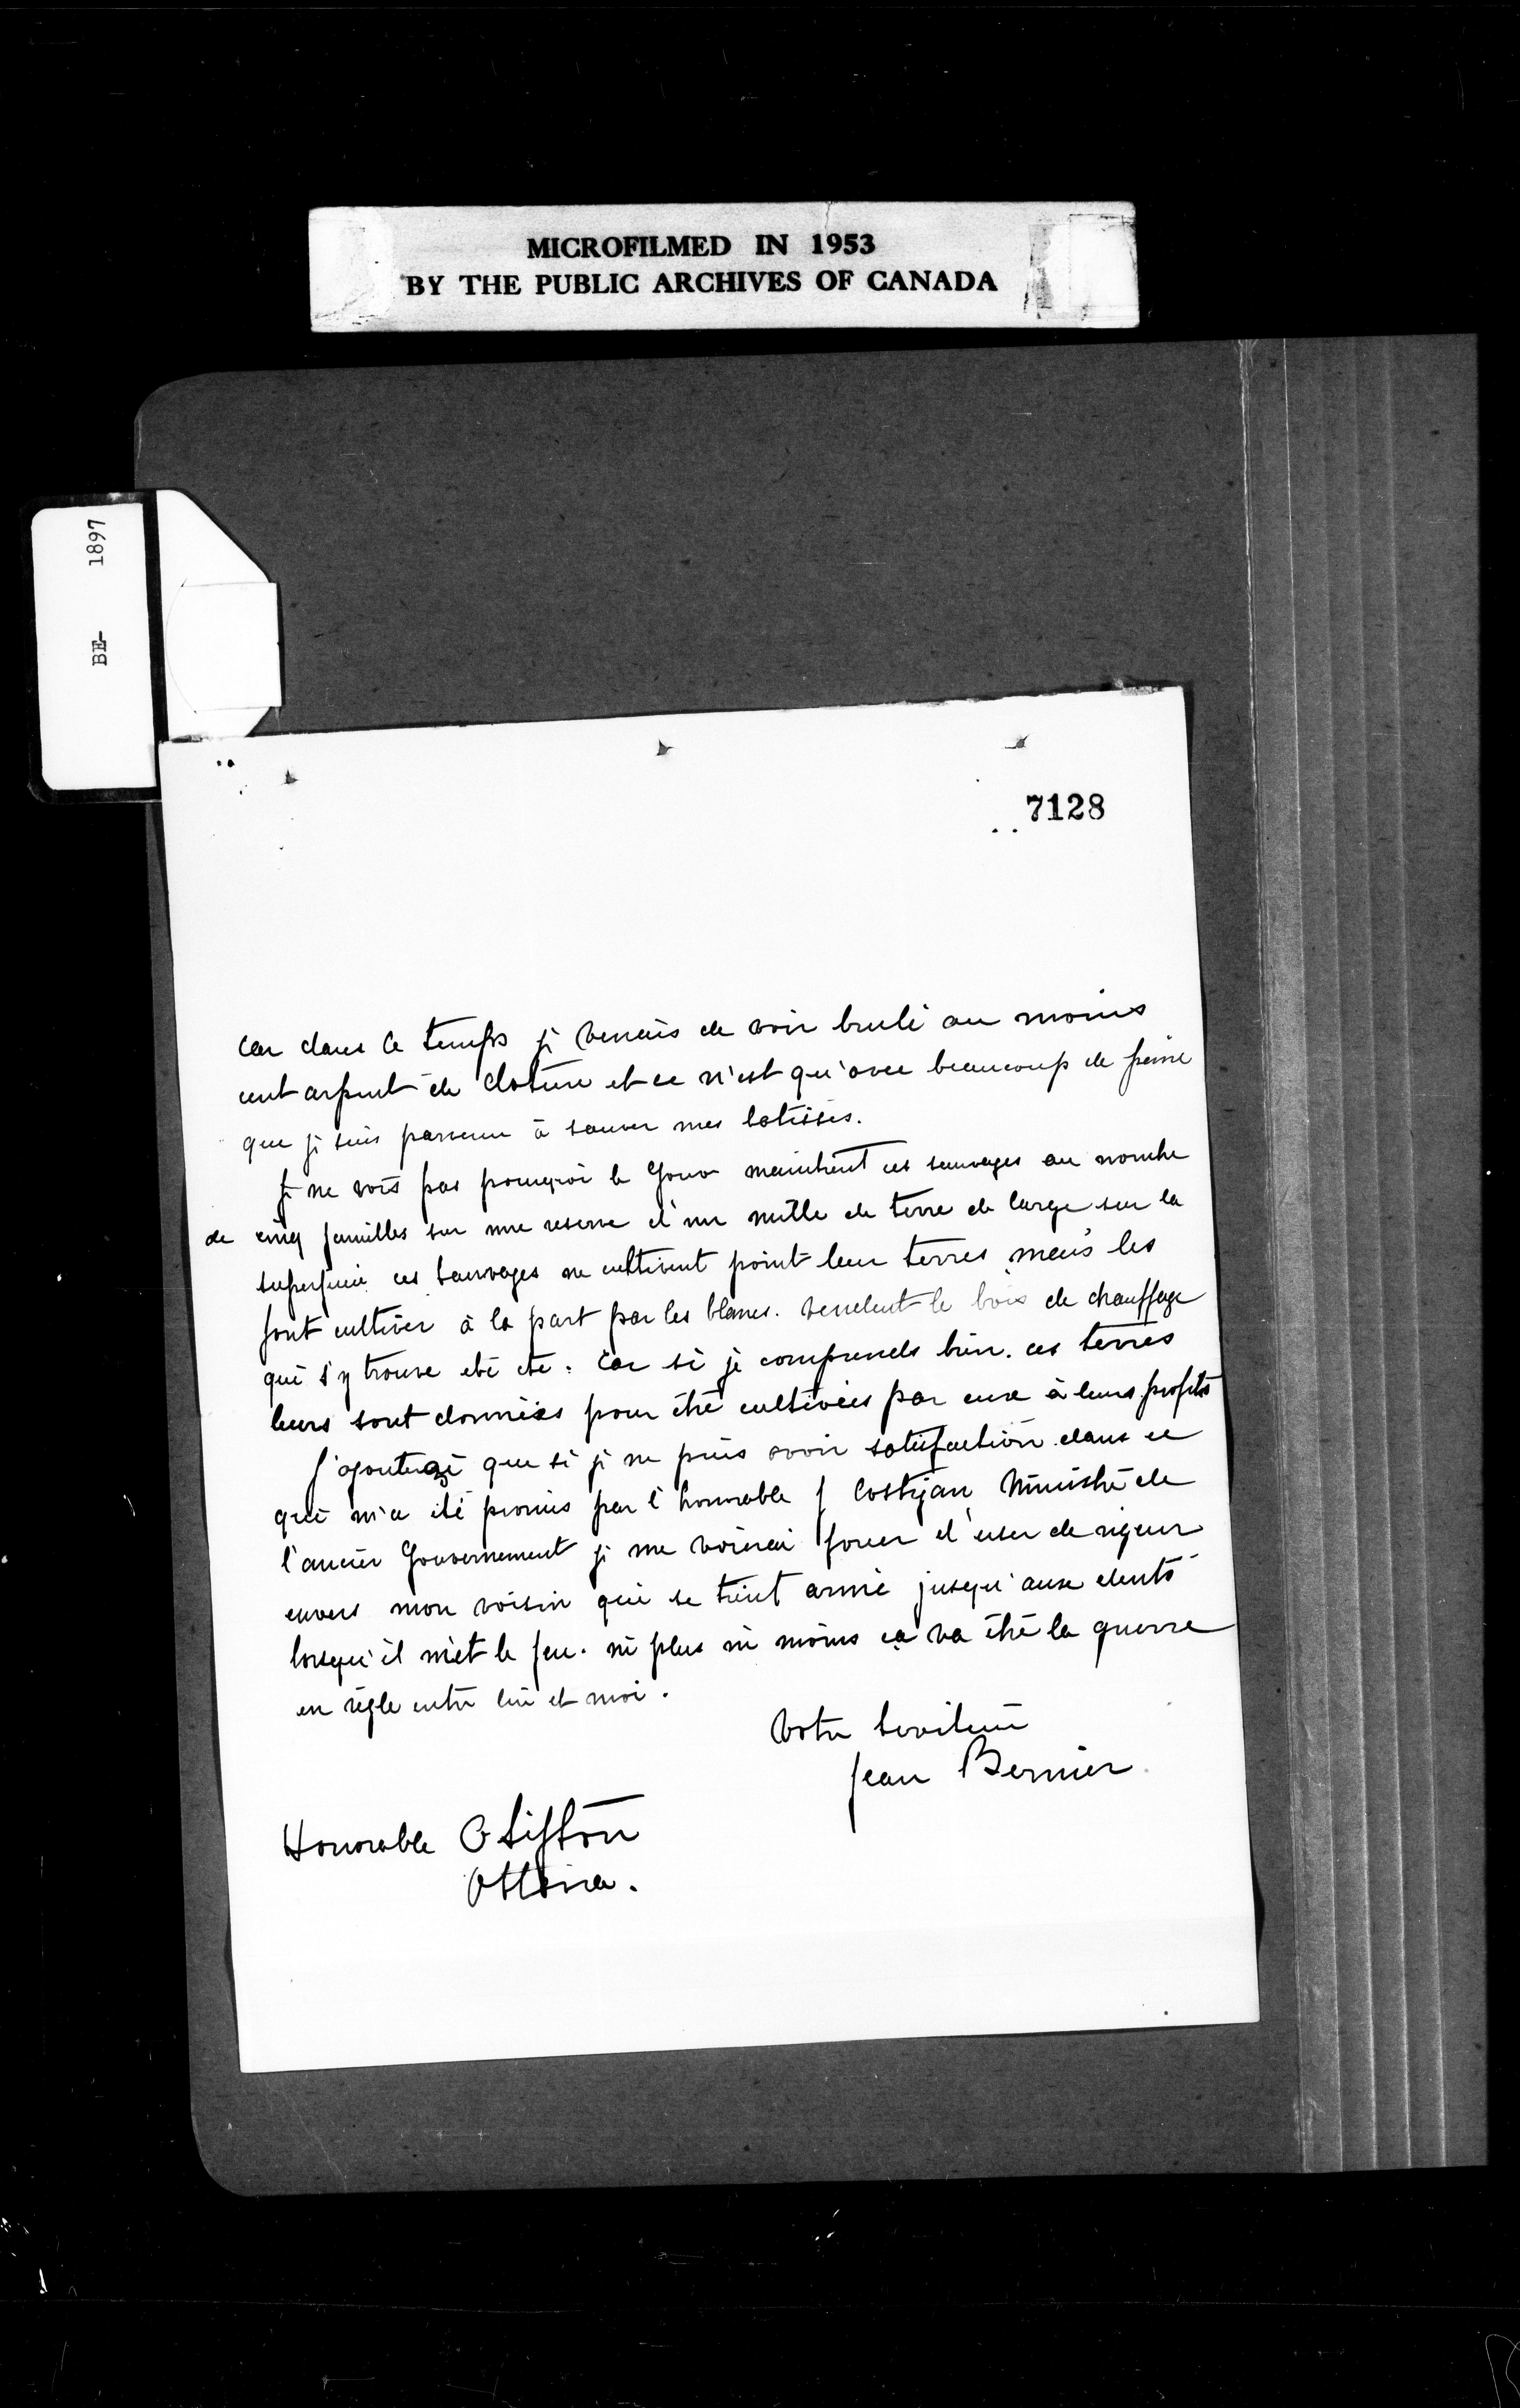 MICROFILMED IN 1953
BY THE PUBLIC ARCHIVES OF CANADA
BE- 1897
7128
car dans ce temps je venais de voir brulé au moins
cent arpent de cloture et ce n'est qu'avec beaucoup de peine
que je suis parvenu à sauver mes batisses.
Je ne vois pas pourquoi le Gouv maintient ces sauvages au nombre
de cinq familles sur une reserve d'un mille de terre de large sur la
superficie ces sauvages ne cultivent point leur terres mais les
font cultiver à la part par les blancs. vendent le bois de chauffage
qui s'y trouve etc etc. Car si je comprends bien. ces terres
leurs sont données pour être cultivées par eux à leurs profits
J'ajouterai que si je ne puis avoir satisfaction dans ce
qui m'a été promis par l'honorable J Costigan Ministre de
l'ancien Gouvernement je me voierai forcer d'user de rigueur
envers mon voisin qui se tient armé jusqu'aux dents
lorsqu'il met le feu. ni plus ni moins ça va être la guerre
en règle entre lui et moi.
Votre serviteur
Jean Bernier
Honorable C Sifton
Ottawa.